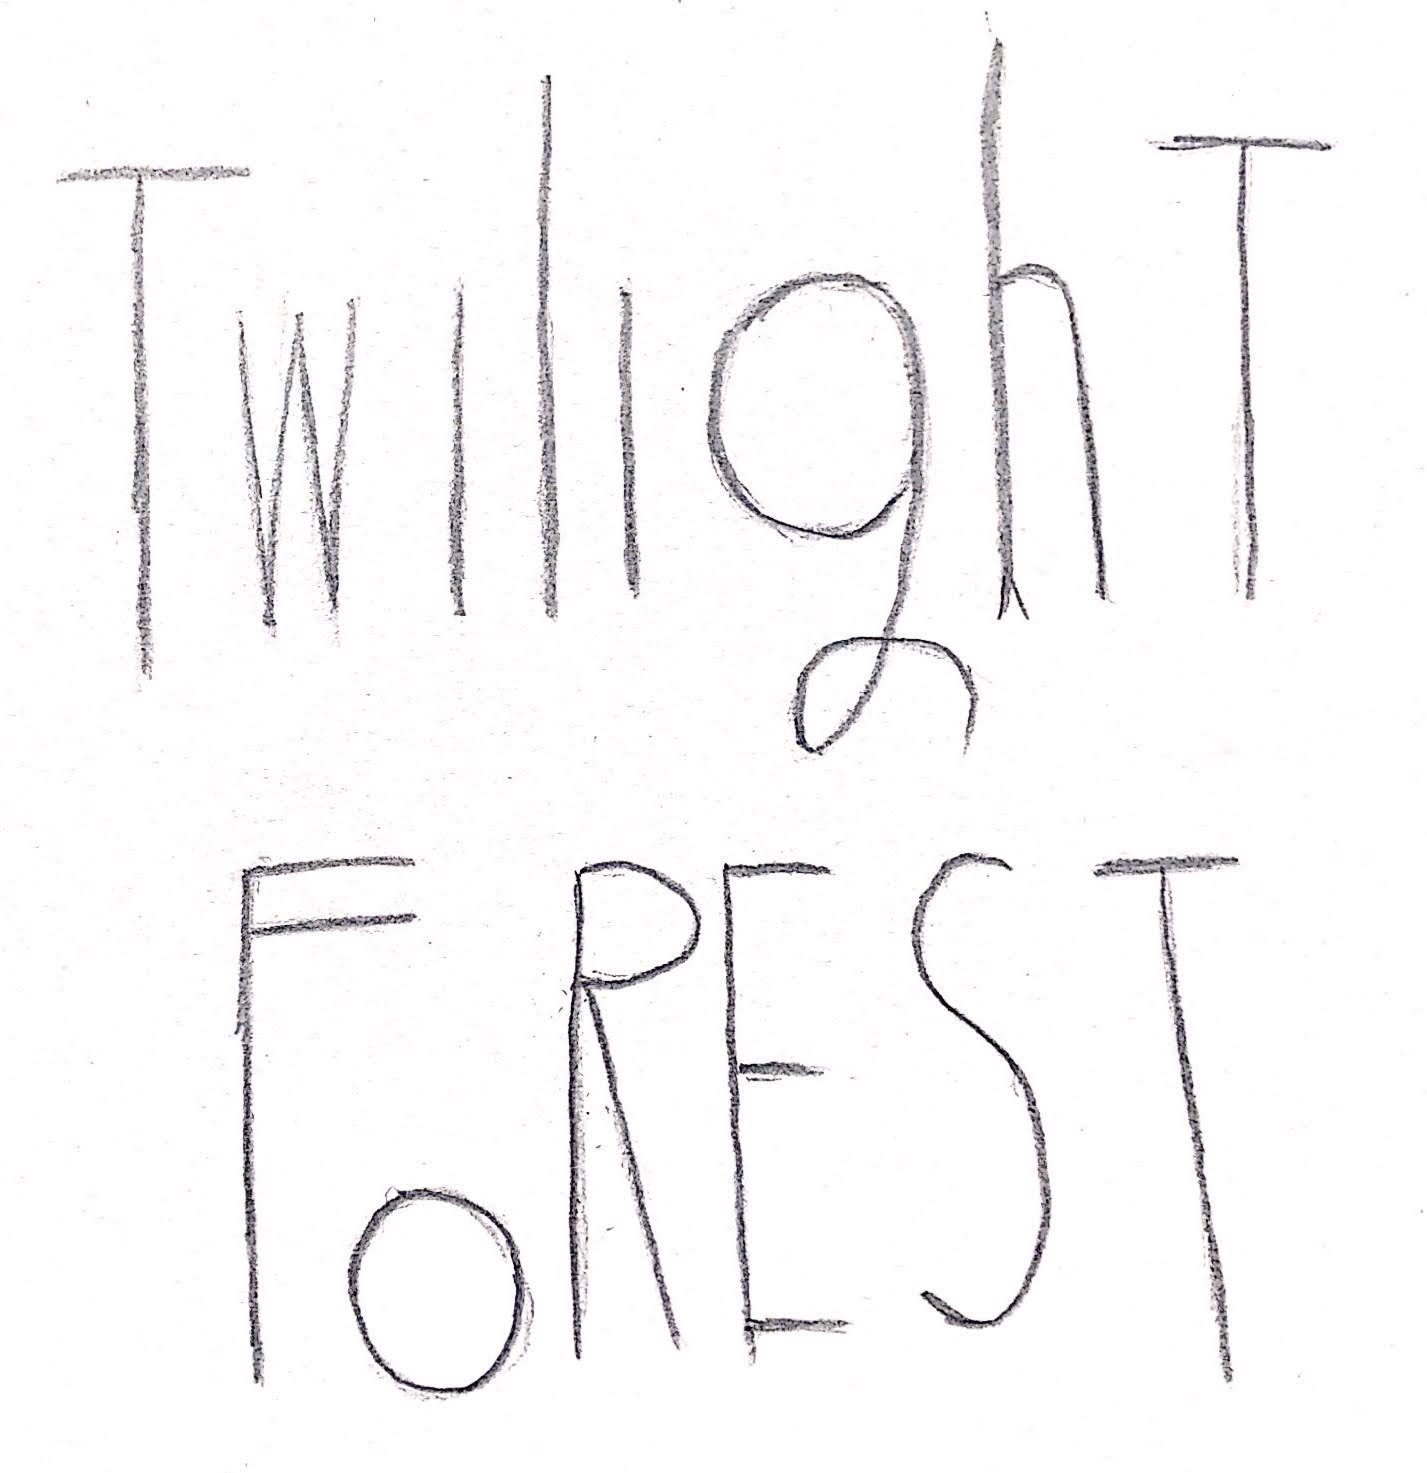 TwilighT
FoREST